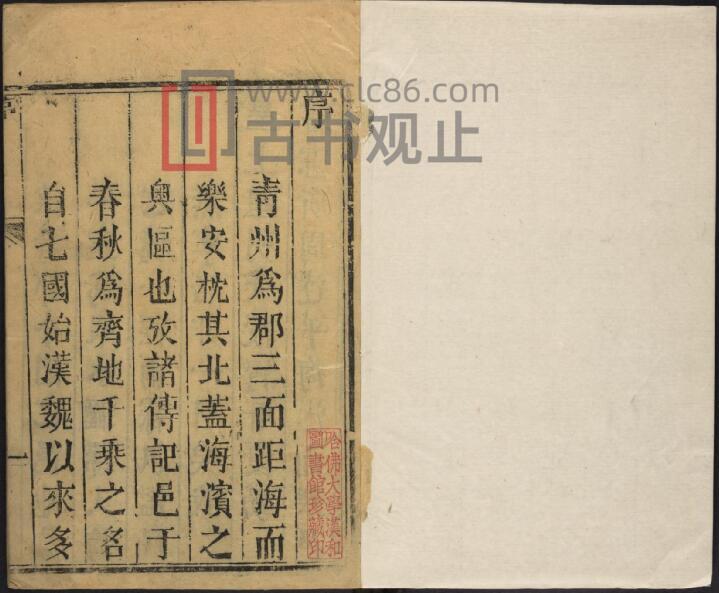 序
青州爲郡三面距海而
樂安枕其北蓋海濱之
奥區也攷諸傳記邑于
春秋爲齊地千乘之名
自七國始漢魏以來多
序
一
哈佛大學漢和
圖書館珍藏印
www.clc86.com
古书观止